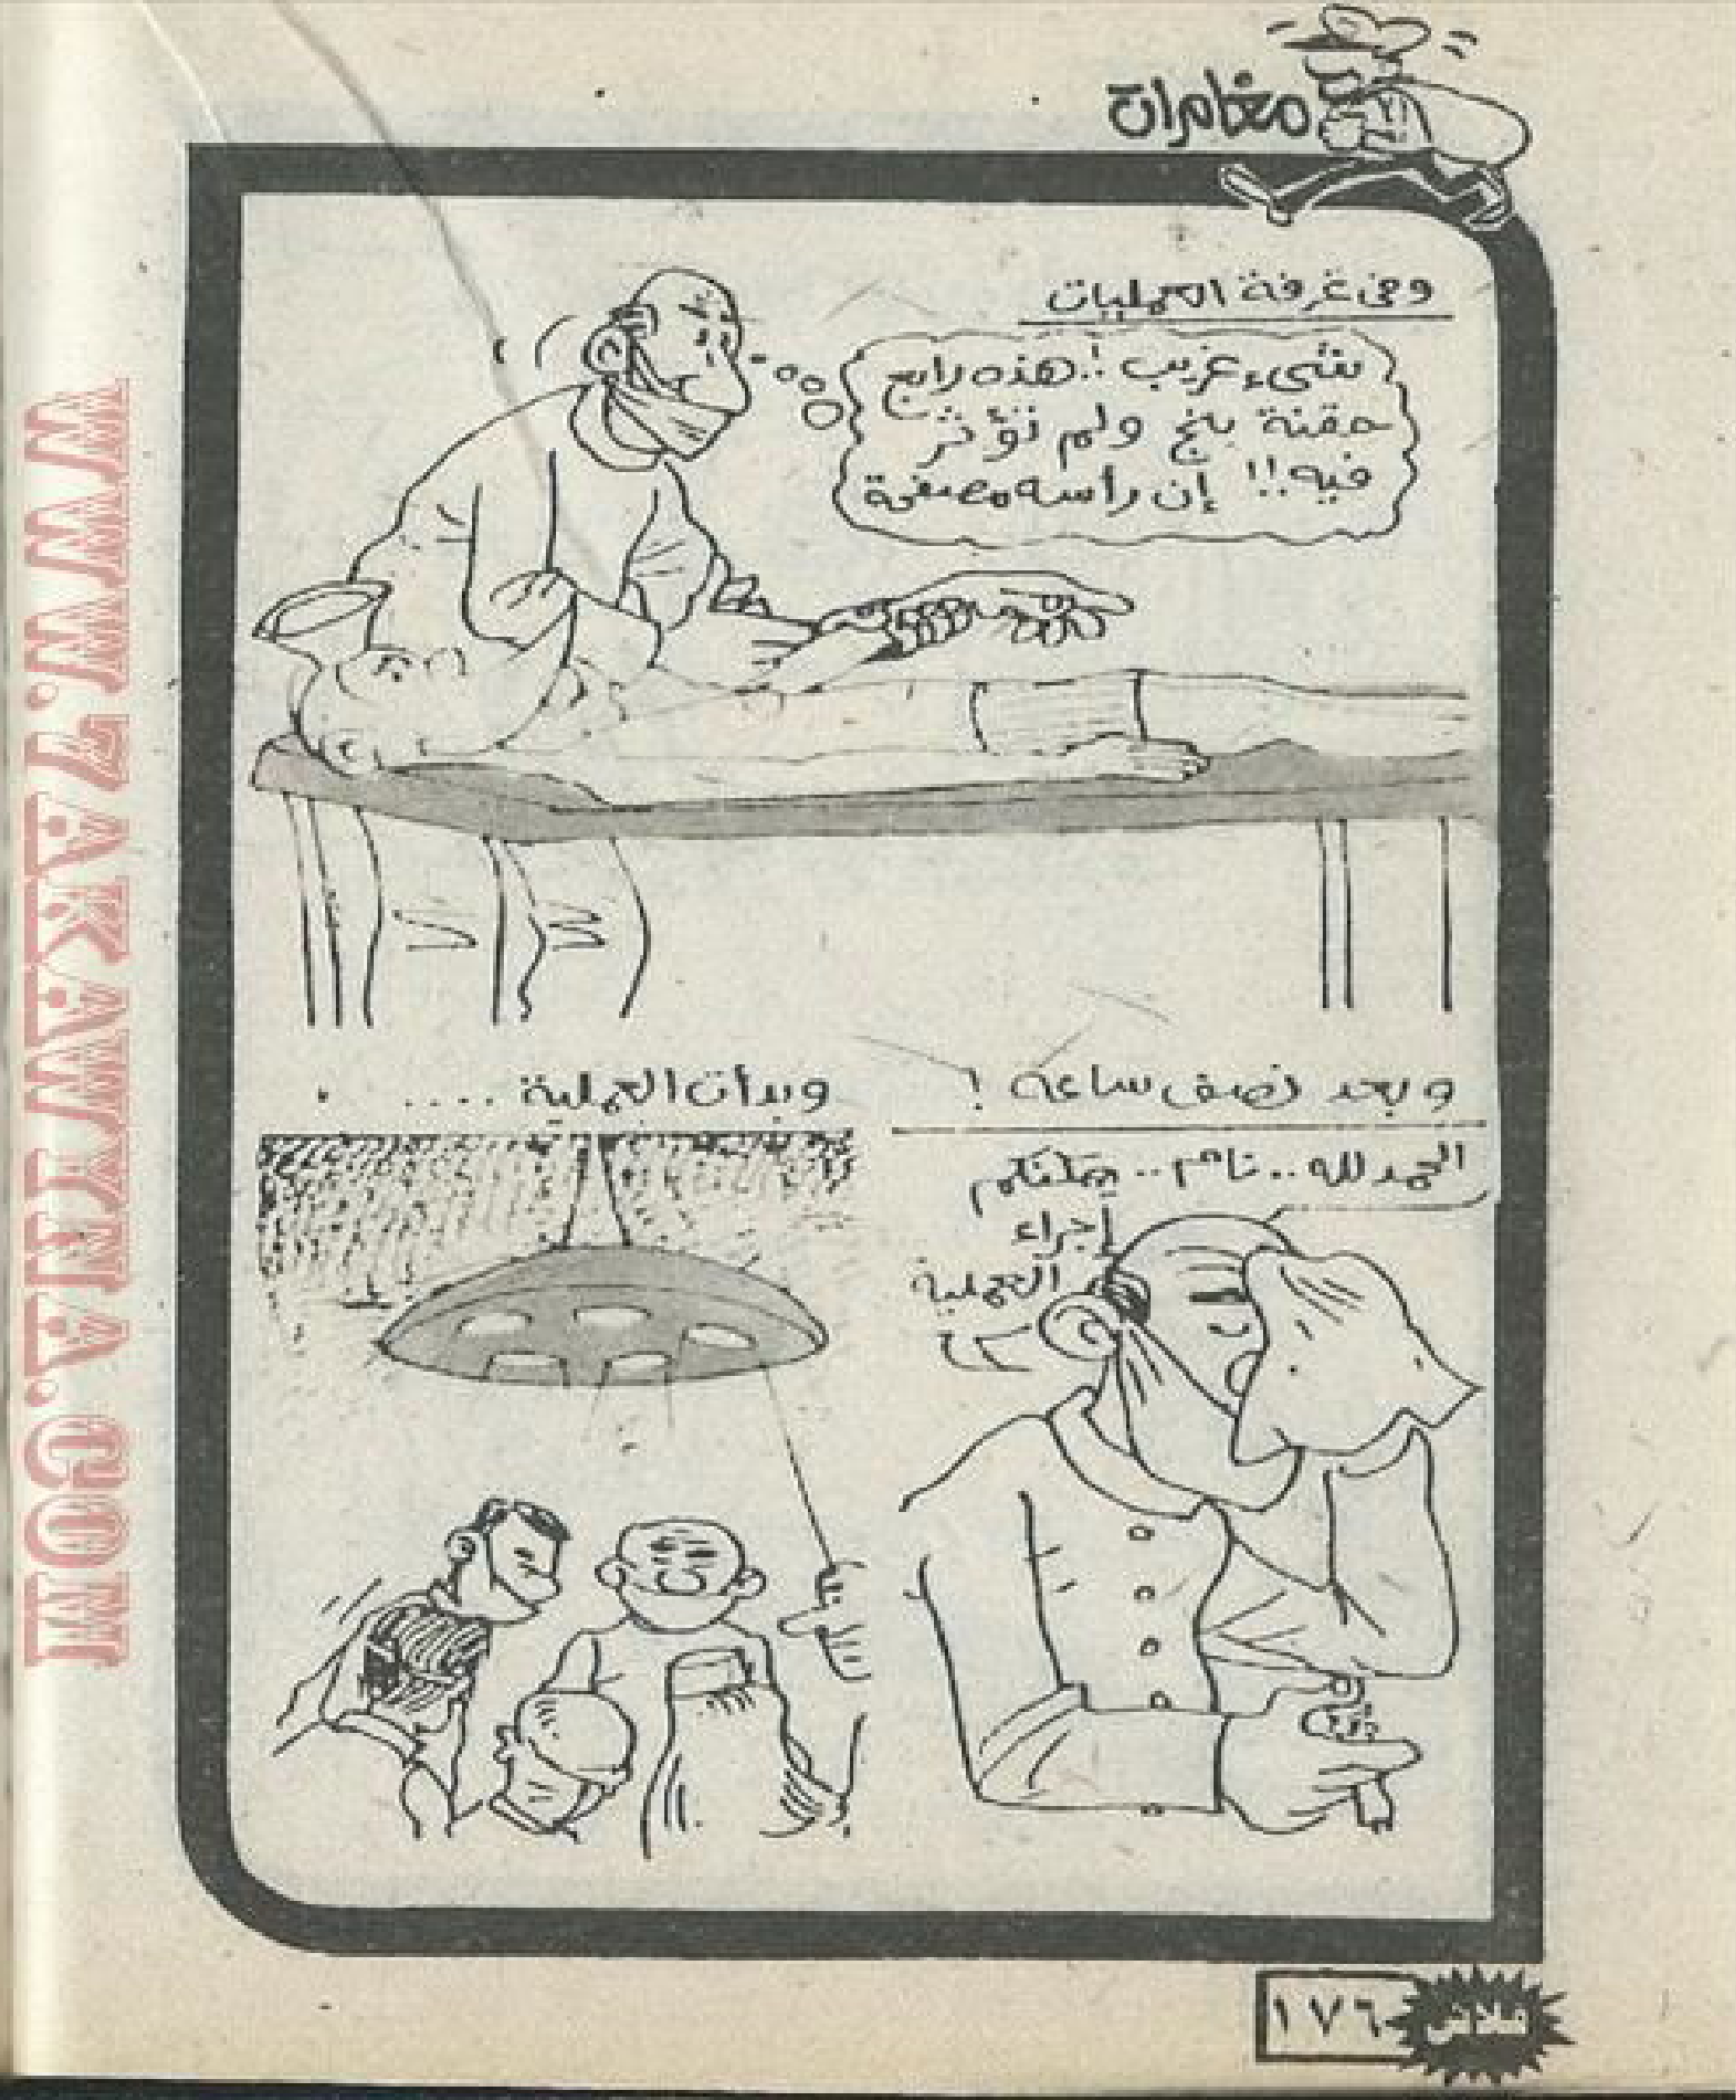 مغامرات
وفى غرفة العمليات
شىء غريب !.. هذه رابع
حقنة بنج ولم تؤثر
فيه !! إن رأسه مصفحة
وبعد نصف ساعة !
الحمد لله .. نام .. يمكنكم
إجراء
العملية
وبدأت العملية .....
فلاش
١٧٦
WWW.7AKAWEYNA.COM